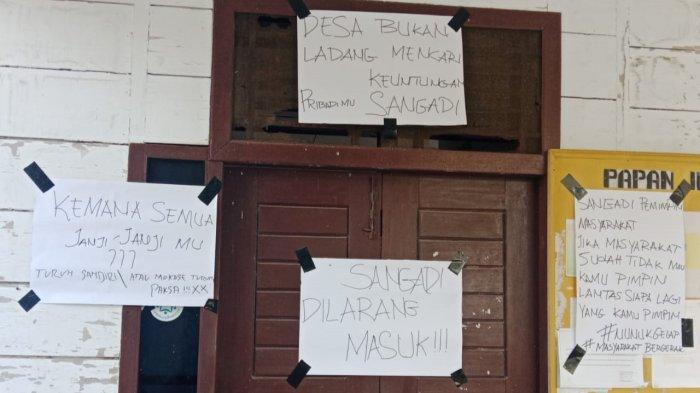 DESA BUKAN
LADANG MENCARI
KEUNTUNGAN
PRIBADIMU SANGADI
KEMANA SEMUA
JANJI-JANJI MU
???
TURUN SENDIRI / ATAU MOKASE TURUN
PAKSA !!! XX
SANGADI
DILARANG
MASUK!!!
PAPAN
SANGADI PEMIMPIN
MASYARAKAT
JIKA MASYARAKAT
SUDAH TIDAK MAU
KAMU PIMPIN
LANTAS SIAPA LAGI
YANG KAMU PIMPIN
#NUNUKGELAP
#MASYARAKAT BERGERAK